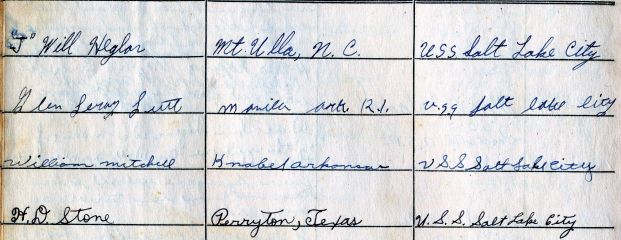 "J" Will Heglar Mt. Ulla, N. C. USS Salt Lake City
Glen Leroy Lutt Manila Ark R1. U.SS Salt Lake City
William Mitchell Knobel Arkansas USS Salt Lake City
H. D. Stone Perryton, Texas U. S. S. Salt Lake City